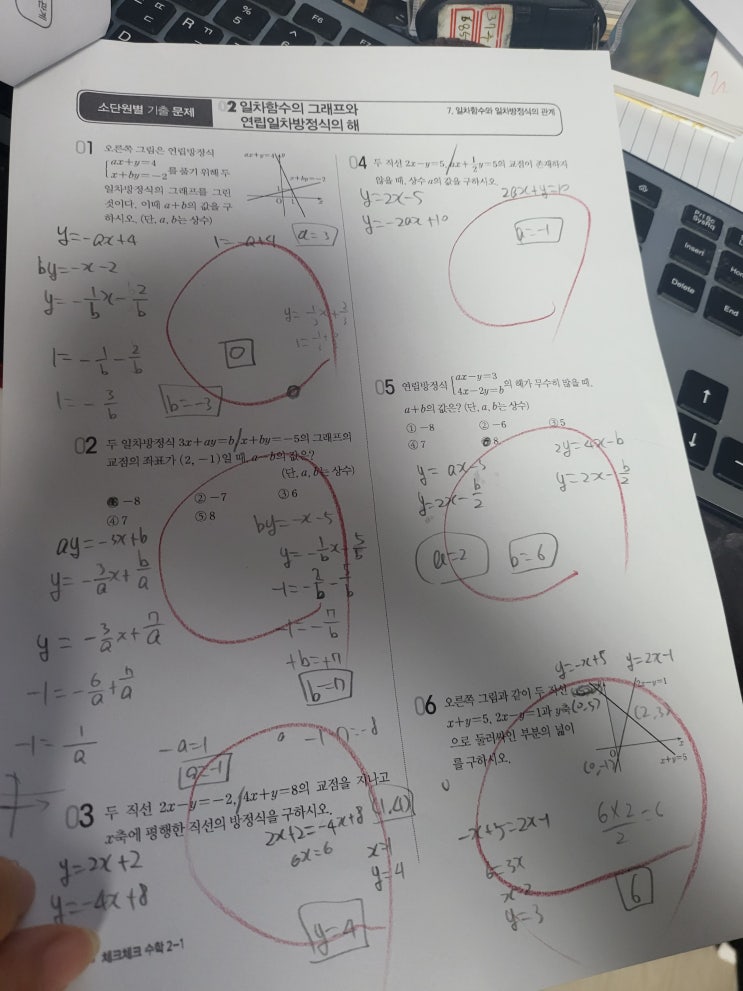 소단원별 기출 문제
02 일차함수의 그래프와
연립일차방정식의 해
7. 일차함수와 일차방정식의 관계
01 오른쪽 그림은 연립방정식
ax+y=4
x+by=-2 를 풀기 위해 두
일차방정식의 그래프를 그린
것이다. 이때 a+b의 값을 구
하시오. (단, a, b는 상수)
ax+y=4
x+by=-2
y=-ax+4
1=-a+4
a=3
by=-x-2
y=-1/b x-2/b
1=-1/b-2/b
0
1=-3/b
b=-3
02 두 일차방정식 3x+ay=b, x+by=-5의 그래프의
교점의 좌표가 (2, -1)일 때, a-b의 값은?
(단, a, b는 상수)
① -8 ② -7 ③ 6
④ 7 ⑤ 8
ay=-3x+b
y=-3/a x+b/a
y=-3/a x+7/a
-1=-6/a+7/a
-1=1/a
-a=1
a=-1
by=-x-5
y=-1/b x-5/b
-1=-2/b-5/b
-1=-7/b
+b=+7
b=7
-1-7=-8
03 두 직선 2x-y=-2, 4x+y=8의 교점을 지나고
x축에 평행한 직선의 방정식을 구하시오.
y=2x+2
y=-4x+8
2x+2=-4x+8
6x=6
x=1
y=4
(1,4)
y=4
체크체크 수학 2-1
04 두 직선 2x-y=5, ax+1/2y=5의 교점이 존재하지
않을 때, 상수 a의 값을 구하시오.
y=2x-5
2ax+y=10
y=-2ax+10
a=-1
05 연립방정식 ax-y=3
4x-2y=b 의 해가 무수히 많을 때,
a+b의 값은? (단, a, b는 상수)
① -8 ② -6 ③ 5
④ 7 ⑤ 8
y=ax-3
y=2x-b/2
2y=4x-b
y=2x-b/2
a=2
b=6
06 오른쪽 그림과 같이 두 직선
x+y=5, 2x-y=1과 y축
으로 둘러싸인 부분의 넓이
를 구하시오.
y=-x+5
y=2x-1
2x-y=1
(0,5)
(2,3)
(0,-1)
x+y=5
-x+5=2x-1
6=3x
x=2
y=3
6×2/2=6
6
F6
F7
PrtSc
SysRq
Insert
Delete
End